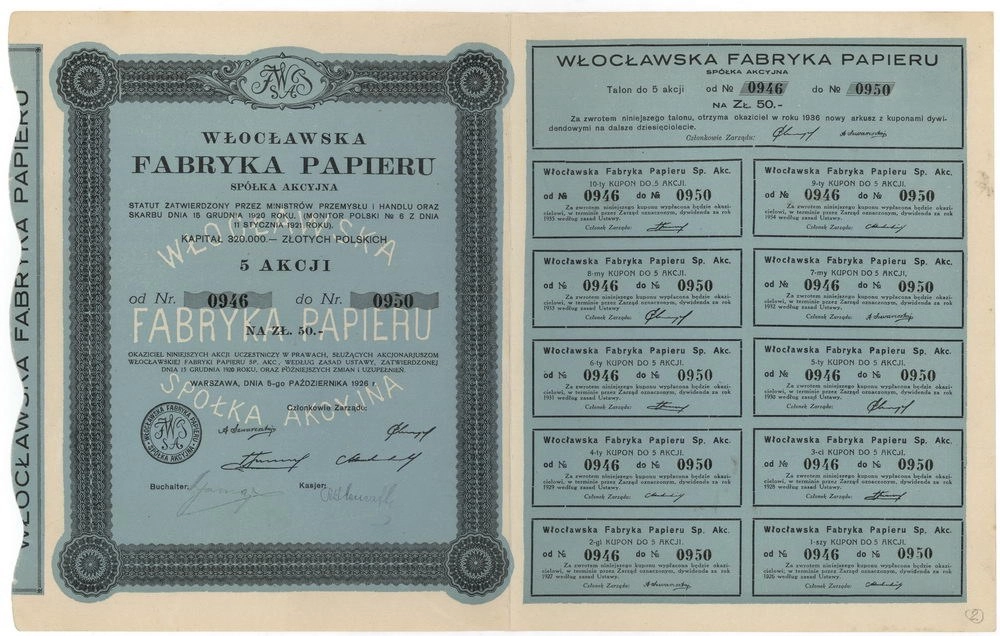 WŁOCŁAWSKA FABRYKA PAPIERU
WŁOCŁAWSKA
FABRYKA PAPIERU
SPÓŁKA AKCYJNA
STATUT ZATWIERDZONY PRZEZ MINISTRÓW PRZEMYSŁU I HANDLU ORAZ
SKARBU DNIA 15 GRUDNIA 1920 ROKU, (MONITOR POLSKI № 6 Z DNIA
11 STYCZNIA 1921 ROKU).
KAPITAŁ 320.000.— ZŁOTYCH POLSKICH
WŁOCŁAWSKA
5 AKCJI
od Nr. 0946 do Nr. 0950
FABRYKA PAPIERU
NA ZŁ. 50.-
OKAZICIEL NINIEJSZYCH AKCJI UCZESTNICZY W PRAWACH, SŁUŻĄCYCH AKCJONARJUSZOM
WŁOCŁAWSKIEJ FABRYKI PAPIERU SP. AKC., WEDŁUG ZASAD USTAWY, ZATWIERDZONEJ
DNIA 15 GRUDNIA 1920 ROKU, ORAZ PÓŹNIEJSZYCH ZMIAN I UZUPEŁNIEŃ.
WARSZAWA, DNIA 5-go PAŹDZIERNIKA 1926 r.
SPÓŁKA AKCYJNA
Członkowie Zarządu:
WŁOCŁAWSKA FABRYKA PAPIERU
SPÓŁKA AKCYJNA
Buchalter: Kasjer:
WŁOCŁAWSKA FABRYKA PAPIERU
SPÓŁKA AKCYJNA
Talon do 5 akcji od № 0946 do № 0950
NA ZŁ. 50.-
Za zwrotem niniejszego talonu, otrzyma okaziciel w roku 1936 nowy arkusz z kuponami dywi-
dendowymi na dalsze dziesięciolecie.
Członkowie Zarządu:
Włocławska Fabryka Papieru Sp. Akc.
10-ty KUPON DO 5 AKCJI.
od № 0946 do № 0950
Za zwrotem niniejszego kuponu wypłacona będzie okazi-
cielowi, w terminie przez Zarząd oznaczonym, dywidenda za rok
1935 według zasad Ustawy.
Członek Zarządu:
Włocławska Fabryka Papieru Sp. Akc.
9-ty KUPON DO 5 AKCJI.
od № 0946 do № 0950
Za zwrotem niniejszego kuponu wypłacona będzie okazi-
cielowi, w terminie przez Zarząd oznaczonym, dywidenda za rok
1934 według zasad Ustawy.
Członek Zarządu:
Włocławska Fabryka Papieru Sp. Akc.
8-my KUPON DO 5 AKCJI.
od № 0946 do № 0950
Za zwrotem niniejszego kuponu wypłacona będzie okazi-
cielowi, w terminie przez Zarząd oznaczonym, dywidenda za rok
1933 według zasad Ustawy.
Członek Zarządu:
Włocławska Fabryka Papieru Sp. Akc.
7-my KUPON DO 5 AKCJI.
od № 0946 do № 0950
Za zwrotem niniejszego kuponu wypłacona będzie okazi-
cielowi, w terminie przez Zarząd oznaczonym, dywidenda za rok
1932 według zasad Ustawy.
Członek Zarządu:
Włocławska Fabryka Papieru Sp. Akc.
6-ty KUPON DO 5 AKCJI.
od № 0946 do № 0950
Za zwrotem niniejszego kuponu wypłacona będzie okazi-
cielowi, w terminie przez Zarząd oznaczonym, dywidenda za rok
1931 według zasad Ustawy.
Członek Zarządu:
Włocławska Fabryka Papieru Sp. Akc.
5-ty KUPON DO 5 AKCJI.
od № 0946 do № 0950
Za zwrotem niniejszego kuponu wypłacona będzie okazi-
cielowi, w terminie przez Zarząd oznaczonym, dywidenda za rok
1930 według zasad Ustawy.
Członek Zarządu:
Włocławska Fabryka Papieru Sp. Akc.
4-ty KUPON DO 5 AKCJI.
od № 0946 do № 0950
Za zwrotem niniejszego kuponu wypłacona będzie okazi-
cielowi, w terminie przez Zarząd oznaczonym, dywidenda za rok
1929 według zasad Ustawy.
Członek Zarządu:
Włocławska Fabryka Papieru Sp. Akc.
3-ci KUPON DO 5 AKCJI.
od № 0946 do № 0950
Za zwrotem niniejszego kuponu wypłacona będzie okazi-
cielowi, w terminie przez Zarząd oznaczonym, dywidenda za rok
1928 według zasad Ustawy.
Członek Zarządu:
Włocławska Fabryka Papieru Sp. Akc.
2-gi KUPON DO 5 AKCJI.
od № 0946 do № 0950
Za zwrotem niniejszego kuponu wypłacona będzie okazi-
cielowi, w terminie przez Zarząd oznaczonym, dywidenda za rok
1927 według zasad Ustawy.
Członek Zarządu:
Włocławska Fabryka Papieru Sp. Akc.
1-szy KUPON DO 5 AKCJI.
od № 0946 do № 0950
Za zwrotem niniejszego kuponu wypłacona będzie okazi-
cielowi, w terminie przez Zarząd oznaczonym, dywidenda za rok
1926 według zasad Ustawy.
Członek Zarządu:
2